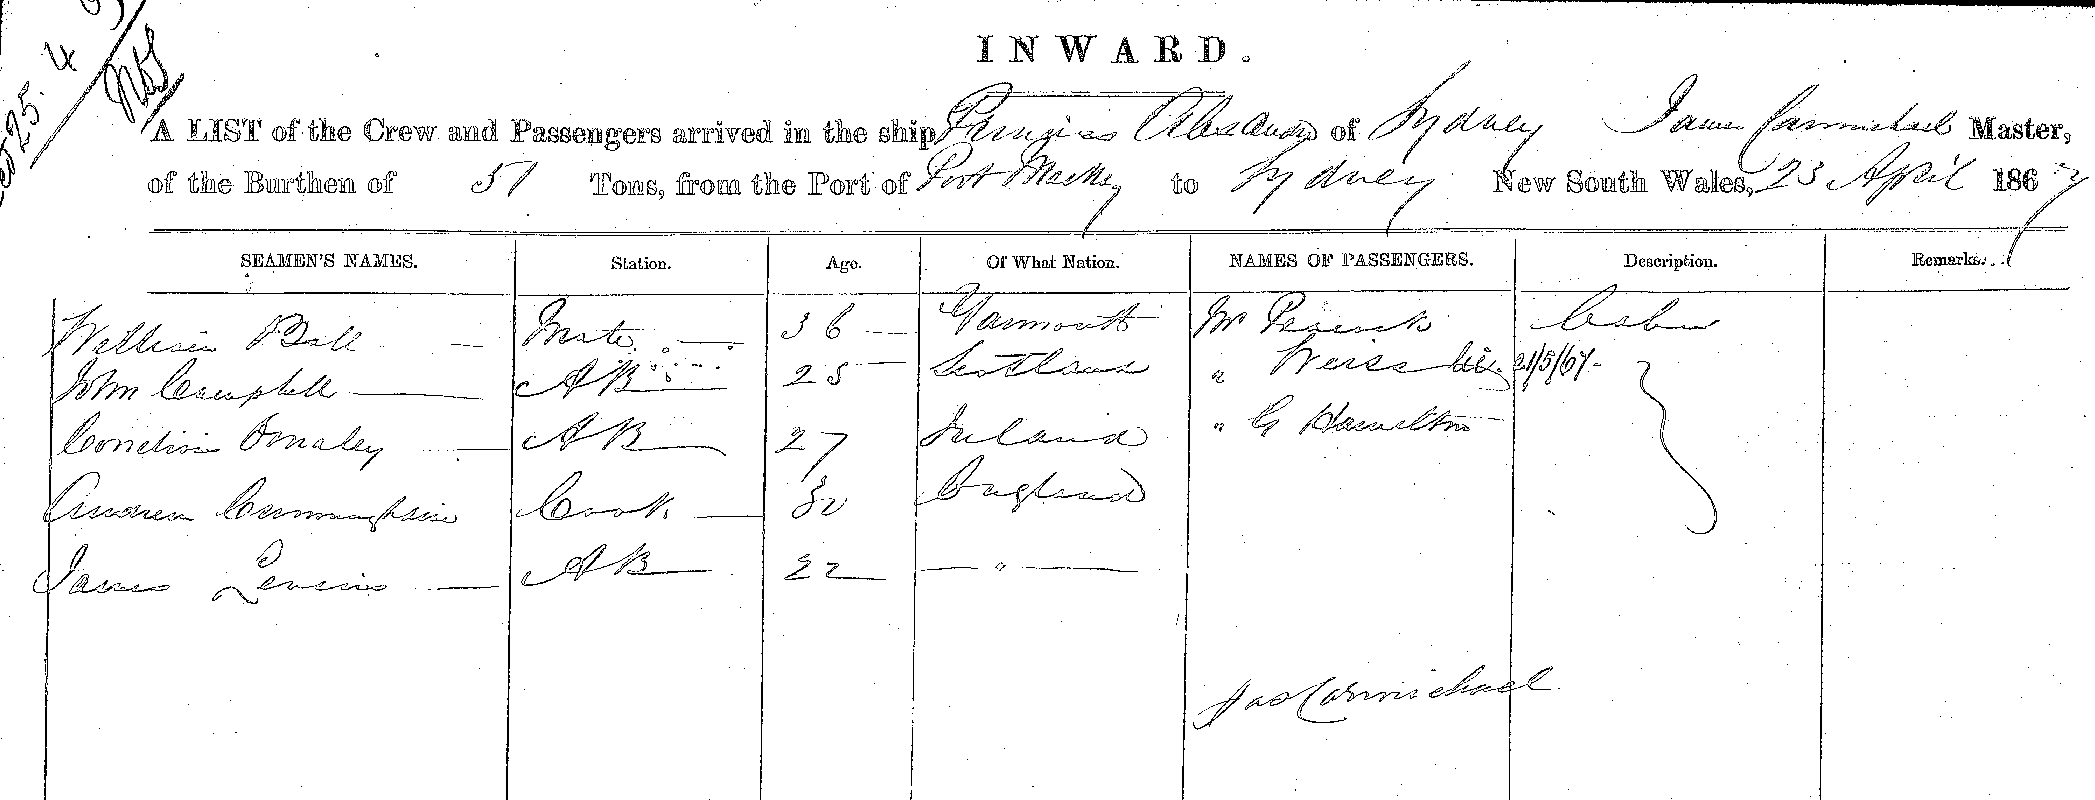 INWARD.
A LIST of the Crew and Passengers arrived in the ship Princess Alexandra of Sydney James Carmichael Master,
of the Burthen of 51 Tons, from the Port of Port Mackey to Sydney New South Wales, 23 April 1867
SEAMEN'S NAMES. Station. Age. Of What Nation. NAMES OF PASSENGERS. Description. Remarks.
William Ball Mate 36 Yarmouth Mr Cabin
John Campbell AB 25 Scotland " Weiss 21/5/67
Cornelius Omaley AB 27 Ireland " G Hamilton
Andrew Cunningham Cook 32 England
James AB 22 "
Jas Carmichael